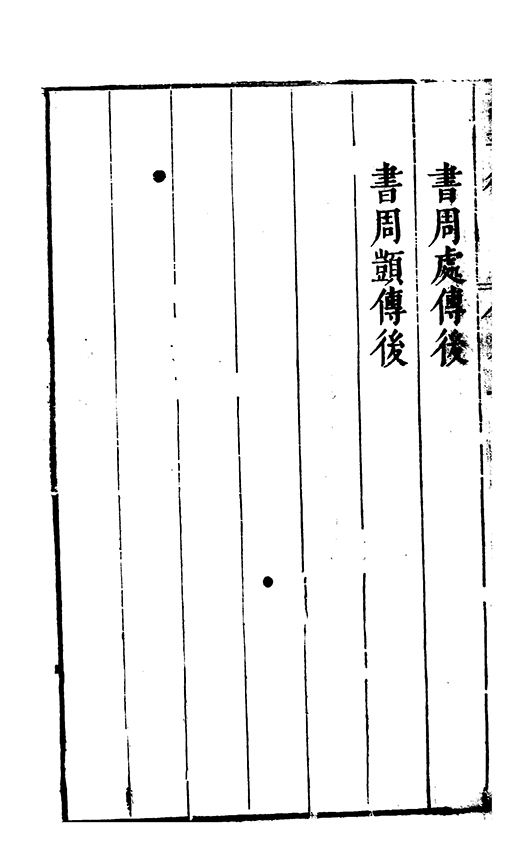 書周處傳後
書周顗傳後